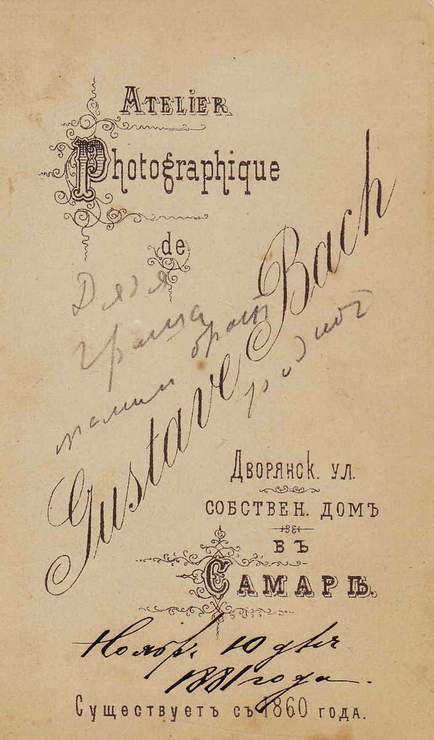 Atelier
Photographique
de
Gustave Bach
Дядя
Гриша
мамин брат
родной
Дворянск. ул.
собствен. домъ
въ
Самарѣ.
Ноябр. 10 дня
1881 года.
Существуетъ съ 1860 года.